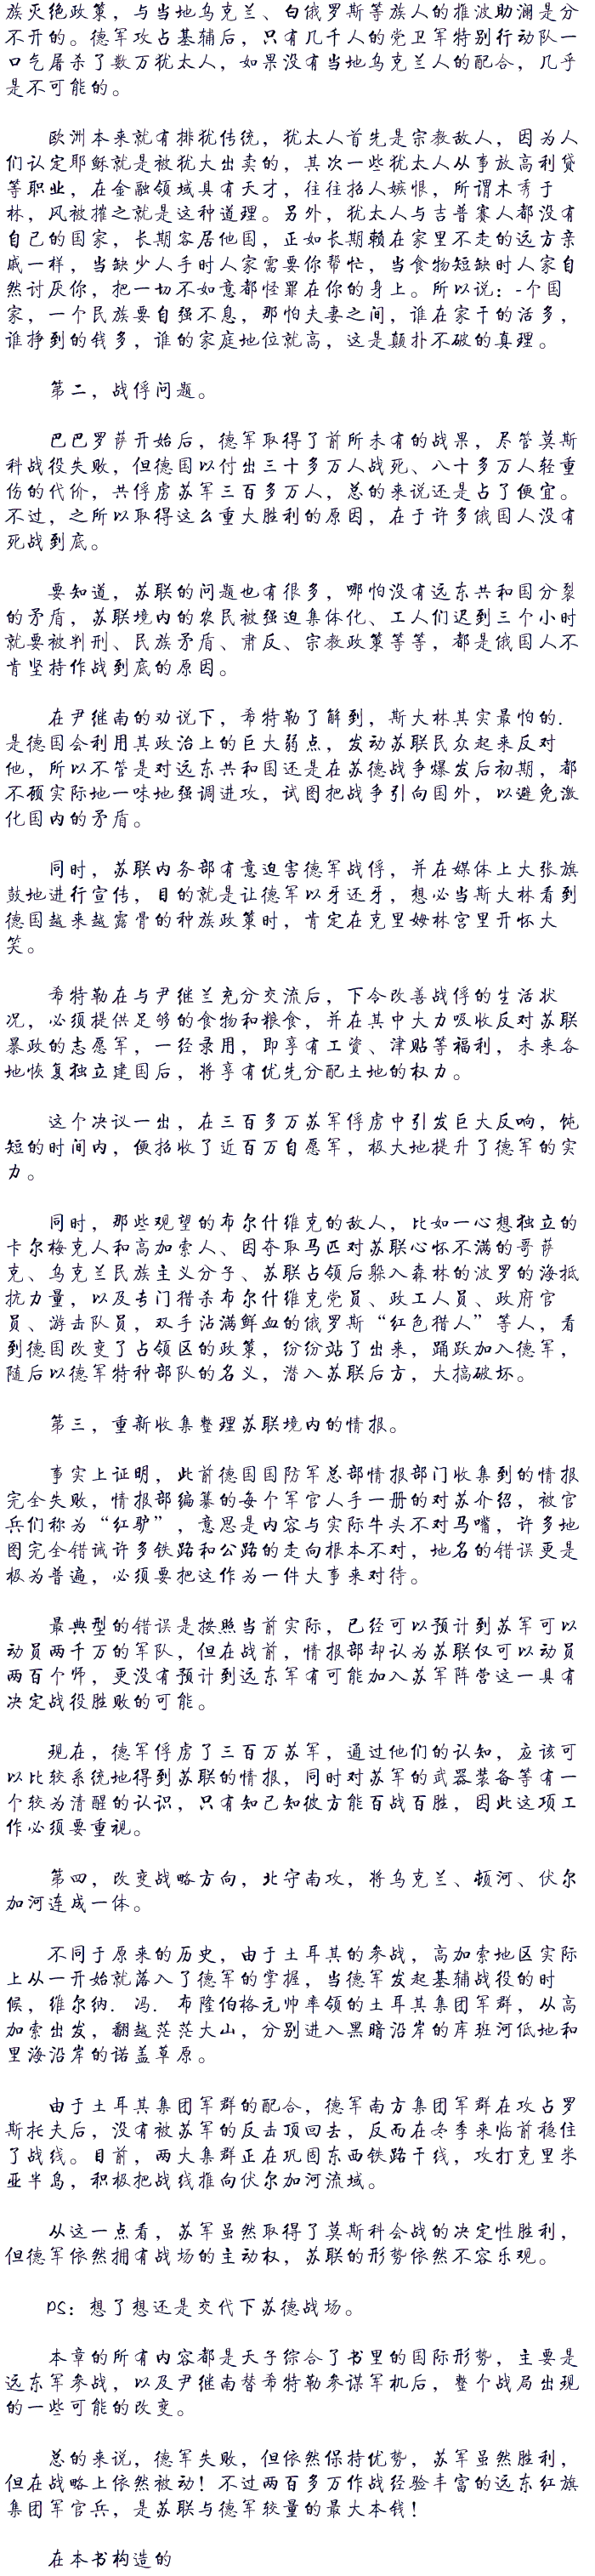 族灭绝政策，与当地乌克兰、白俄罗斯等族人的推波助澜是分
不开的。德军攻占基辅后，只有几千人的党卫军特别行动队一
口气屠杀了数万犹太人，如果没有当地乌克兰人的配合，几乎
是不可能的。
欧洲本来就有排犹传统，犹太人首先是宗教敌人，因为人
们认定耶稣就是被犹大出卖的，其次一些犹太人从事放高利贷
等职业，在金融领域具有天才，往往招人嫉恨，所谓木秀于
林，风被摧之就是这种道理。另外，犹太人与吉普赛人都没有
自己的国家，长期客居他国，正如长期赖在家里不走的远方亲
戚一样，当缺少人手时人家需要你帮忙，当食物短缺时人家自
然讨厌你，把一切不如意都怪罪在你的身上。所以说：-个国
家，一个民族要自强不息，那怕夫妻之间，谁在家干的活多，
谁挣到的钱多，谁的家庭地位就高，这是颠扑不破的真理。
第二，战俘问题。
巴巴罗萨开始后，德军取得了前所未有的战果，尽管莫斯
科战役失败，但德国以付出三十多万人战死、八十多万人轻重
伤的代价，共俘虏苏军三百多万人，总的来说还是占了便宜。
不过，之所以取得这么重大胜利的原因，在于许多俄国人没有
死战到底。
要知道，苏联的问题也有很多，哪怕没有远东共和国分裂
的矛盾，苏联境内的农民被强迫集体化、工人们迟到三个小时
就要被判刑、民族矛盾、肃反、宗教政策等等，都是俄国人不
肯坚持作战到底的原因。
在尹继南的劝说下，希特勒了解到，斯大林其实最怕的.
是德国会利用其政治上的巨大弱点，发动苏联民众起来反对
他，所以不管是对远东共和国还是在苏德战争爆发后初期，都
不顾实际地一味地强调进攻，试图把战争引向国外，以避免激
化国内的矛盾。
同时，苏联内务部有意迫害德军战俘，并在媒体上大张旗
鼓地进行宣传，目的就是让德军以牙还牙，想必当斯大林看到
德国越来越露骨的种族政策时，肯定在克里姆林宫里开怀大
笑。
希特勒在与尹继兰充分交流后，下令改善战俘的生活状
况，必须提供足够的食物和粮食，并在其中大力吸收反对苏联
暴政的志愿军，一经录用，即享有工资、津贴等福利，未来各
地恢复独立建国后，将享有优先分配土地的权力。
这个决议一出，在三百多万苏军俘虏中引发巨大反响，饨
短的时间内，便招收了近百万自愿军，极大地提升了德军的实
力。
同时，那些观望的布尔什维克的敌人，比如一心想独立的
卡尔梅克人和高加索人、因夺取马匹对苏联心怀不满的哥萨
克、乌克兰民族主义分子、苏联占领后躲入森林的波罗的海抵
抗力量，以及专门猎杀布尔什维克党员、政工人员、政府官
员、游击队员，双手沾满鲜血的俄罗斯“红色猎人”等人，看
到德国改变了占领区的政策，纷纷站了出来，踊跃加入德军，
随后以德军特种部队的名义，潜入苏联后方，大搞破坏。
第三，重新收集整理苏联境内的情报。
事实上证明，此前德国国防军总部情报部门收集到的情报
完全失败，情报部编纂的每个军官人手一册的对苏介绍，被官
兵们称为“红驴”，意思是内容与实际牛头不对马嘴，许多地
图完全错诫许多铁路和公路的走向根本不对，地名的错误更是
极为普遍，必须要把这作为一件大事来对待。
最典型的错误是按照当前实际，已经可以预计到苏军可以
动员两千万的军队，但在战前，情报部却认为苏联仅可以动员
两百个师，更没有预计到远东军有可能加入苏军阵营这一具有
决定战役胜败的可能。
现在，德军俘虏了三百万苏军，通过他们的认知，应该可
以比较系统地得到苏联的情报，同时对苏军的武器装备等有一
个较为清醒的认识，只有知己知彼方能百战百胜，因此这项工
作必须要重视。
第四，改变战略方向，北守南攻，将乌克兰、顿河、伏尔
加河连成一体。
不同于原来的历史，由于土耳其的参战，高加索地区实际
上从一开始就落入了德军的掌握，当德军发起基辅战役的时
候，维尔纳. 冯. 布隆伯格元帅率领的土耳其集团军群，从高
加索出发，翻越茫茫大山，分别进入黑暗沿岸的库班河低地和
里海沿岸的诺盖草原。
由于土耳其集团军群的配合，德军南方集团军群在攻占罗
斯托夫后，没有被苏军的反击顶回去，反而在冬季来临前稳住
了战线。目前，两大集群正在巩固东西铁路干线，攻打克里米
亚半岛，积极把战线推向伏尔加河流域。
从这一点看，苏军虽然取得了莫斯科会战的决定性胜利，
但德军依然拥有战场的主动权，苏联的形势依然不容乐观。
PS：想了想还是交代下苏德战场。
本章的所有内容都是天子综合了书里的国际形势，主要是
远东军参战，以及尹继南替希特勒参谋军机后，整个战局出现
的一些可能的改变。
总的来说，德军失败，但依然保持优势，苏军虽然胜利，
但在战略上依然被动！不过两百多万作战经验丰富的远东红旗
集团军官兵，是苏联与德军较量的最大本钱！
在本书构造的